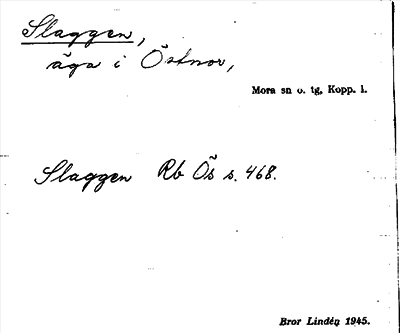 Slaggen,
äga i Östnor,
Mora sn o. tg, Kopp. l.
Slaggen Rb Ös s. 468.
Bror Lindén 1945.